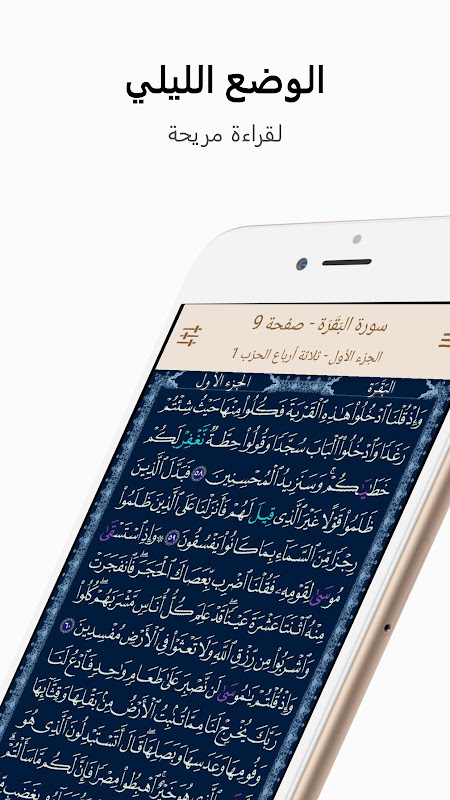 الوضع الليلي
لقراءة مريحة
سورة البَقَرَة - صفحة 9
الجزء الأول - ثلاثة أرباع الحزب 1
البَقَرَة الجزء الأول
وَإِذْ قُلْنَا ٱدْخُلُوا۟ هَٰذِهِ ٱلْقَرْيَةَ فَكُلُوا۟ مِنْهَا حَيْثُ شِئْتُمْ
رَغَدًا وَٱدْخُلُوا۟ ٱلْبَابَ سُجَّدًا وَقُولُوا۟ حِطَّةٌ نَّغْفِرْ لَكُمْ
خَطَٰيَٰكُمْ وَسَنَزِيدُ ٱلْمُحْسِنِينَ ٥٨ فَبَدَّلَ ٱلَّذِينَ
ظَلَمُوا۟ قَوْلًا غَيْرَ ٱلَّذِى قِيلَ لَهُمْ فَأَنزَلْنَا عَلَى ٱلَّذِينَ ظَلَمُوا۟
رِجْزًا مِّنَ ٱلسَّمَآءِ بِمَا كَانُوا۟ يَفْسُقُونَ ٥٩ وَإِذِ ٱسْتَسْقَىٰ
مُوسَىٰ لِقَوْمِهِۦ فَقُلْنَا ٱضْرِب بِّعَصَاكَ ٱلْحَجَرَ فَٱنفَجَرَتْ
مِنْهُ ٱثْنَتَا عَشْرَةَ عَيْنًا قَدْ عَلِمَ كُلُّ أُنَاسٍ مَّشْرَبَهُمْ كُلُوا۟
وَٱشْرَبُوا۟ مِن رِّزْقِ ٱللَّهِ وَلَا تَعْثَوْا۟ فِى ٱلْأَرْضِ مُفْسِدِينَ ٦٠
وَإِذْ قُلْتُمْ يَٰمُوسَىٰ لَن نَّصْبِرَ عَلَىٰ طَعَامٍ وَٰحِدٍ فَٱدْعُ لَنَا
رَبَّكَ يُخْرِجْ لَنَا مِمَّا تُنۢبِتُ ٱلْأَرْضُ مِنۢ بَقْلِهَا وَقِثَّآئِهَا
وَفُومِهَا وَعَدَسِهَا وَبَصَلِهَا قَالَ أَتَسْتَبْدِلُونَ ٱلَّذِى هُوَ
بِٱلَّذِى هُوَ خَيْرٌ ٱهْبِطُوا۟ مِصْرًا فَإِنَّ لَكُم مَّا سَأَلْتُمْ